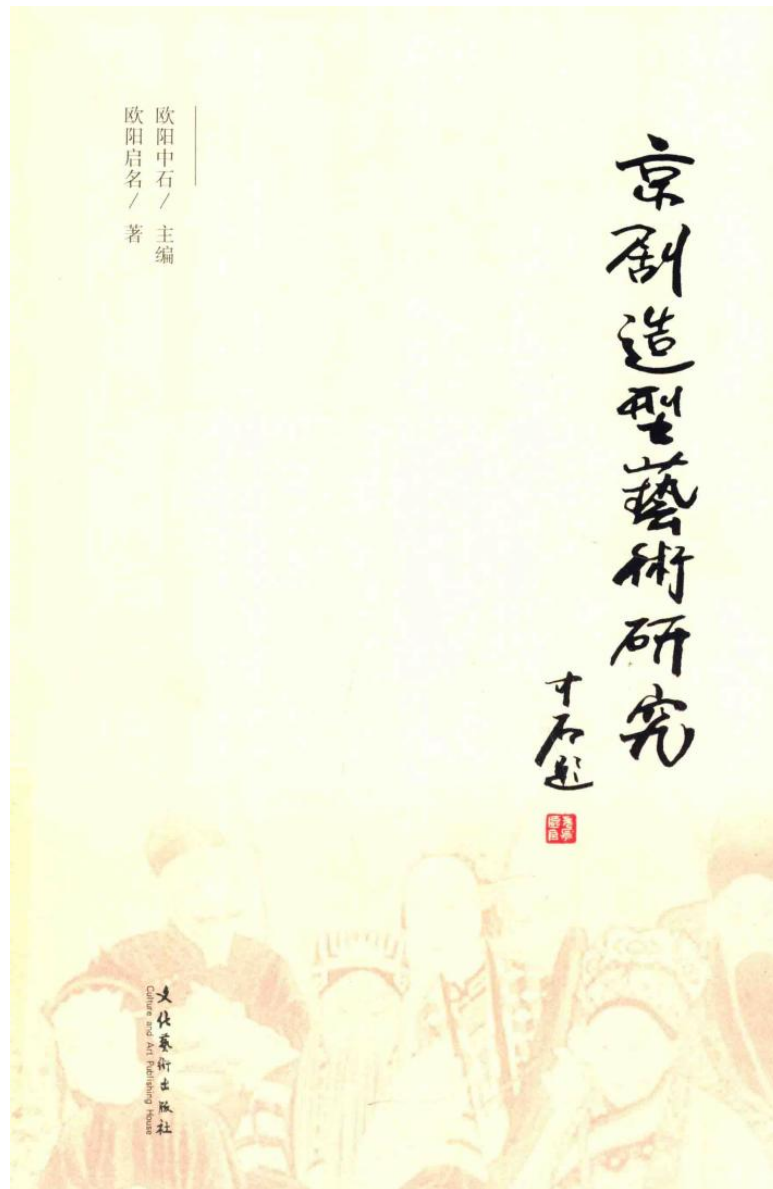 京劇造型藝術研究
中石题
欧阳中石/主编
欧阳启名/著
文化藝術出版社
Culture and Art Publishing House